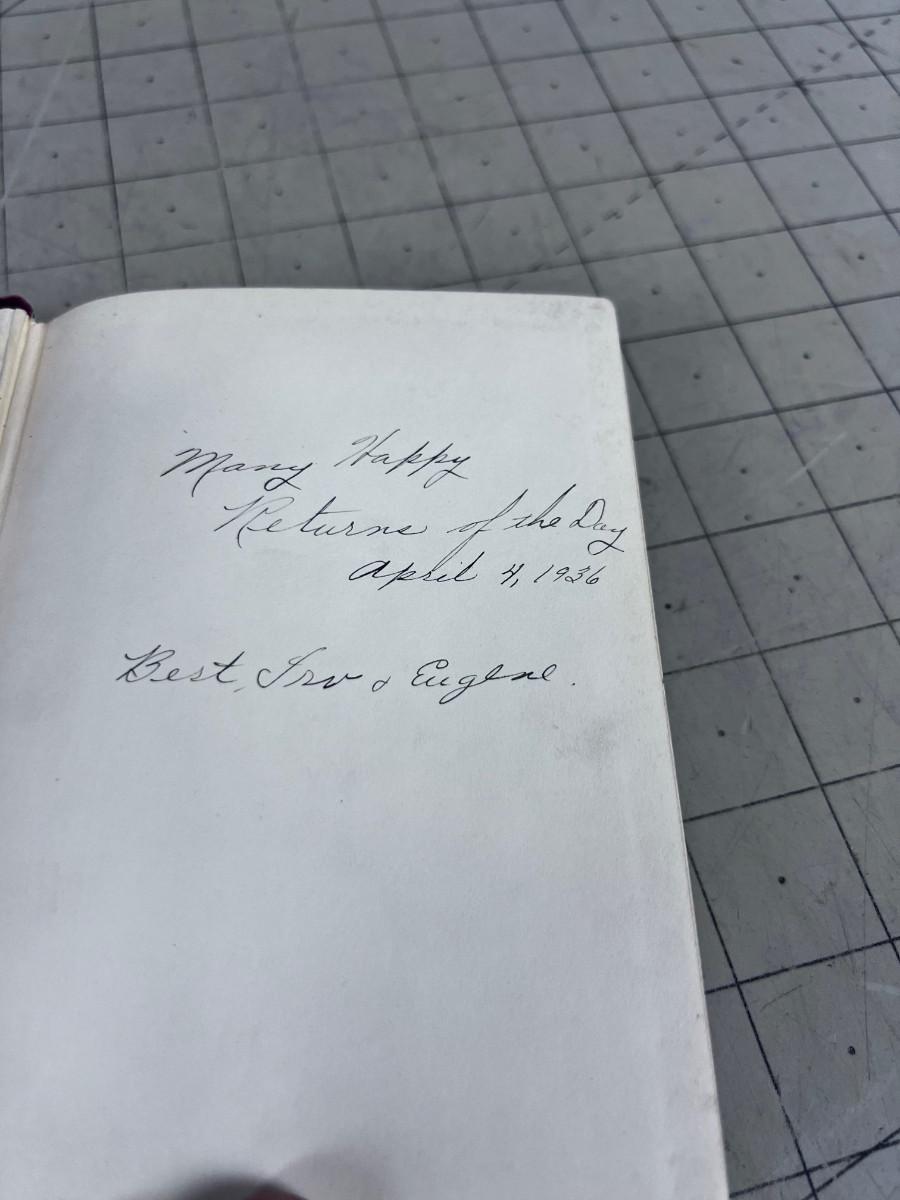 Many Happy
Returns of the Day
April 4, 1936
Best, Irv & Eugene.